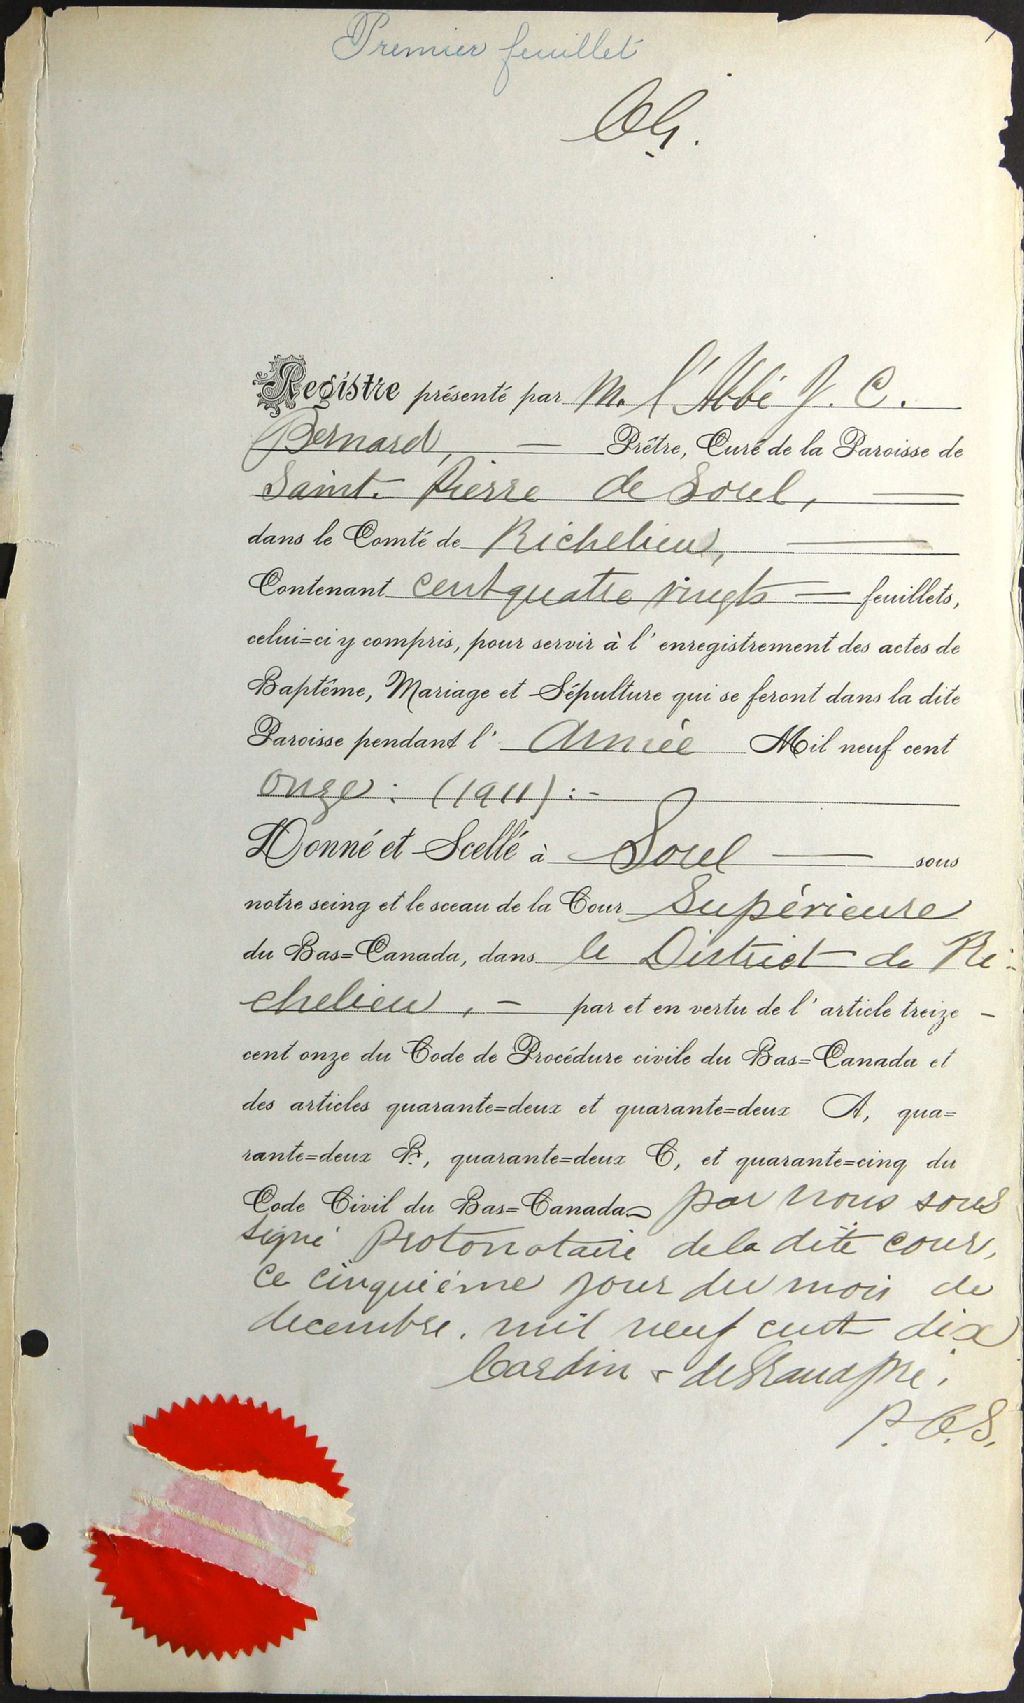 Premier feuillet
Registre présenté par M. l'Abbé J. C.
Bernard, — Prêtre, Curé de la Paroisse de
Saint-Pierre de Sorel, —
dans le Comté de Richelieu, —
Contenant cent quatre vingts — feuillets,
celui=ci y compris, pour servir à l'enregistrement des actes de
Baptême, Mariage et Sépulture qui se feront dans la dite
Paroisse pendant l'Année Mil neuf cent
onze : (1911) :-
Donné et Scellé à Sorel — sous
notre seing et le sceau de la Cour Supérieure
du Bas=Canada, dans le District de Ri-
chelieu, — par et en vertu de l'article treize -
cent onze du Code de Procédure civile du Bas=Canada et
des articles quarante=deux et quarante=deux A, qua=
rante=deux B, quarante=deux C, et quarante=cinq du
Code Civil du Bas=Canada par nous sous
signé Protonotaire de la dite cour,
ce cinquième jour du mois de
decembre. mil neuf cent dix
Cardin & deGrandpré,
P. C. S.